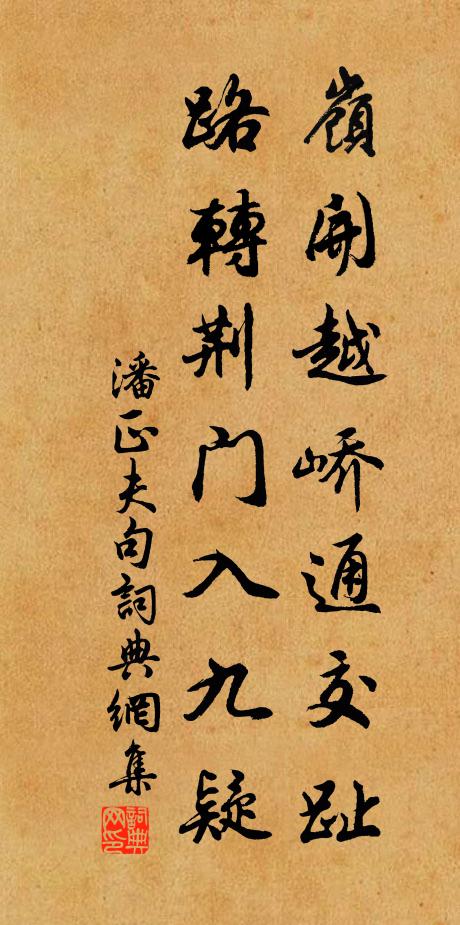 嶺開越嶠通交趾
路轉荆门入九疑
潘正夫句詞典網集
詞典网印